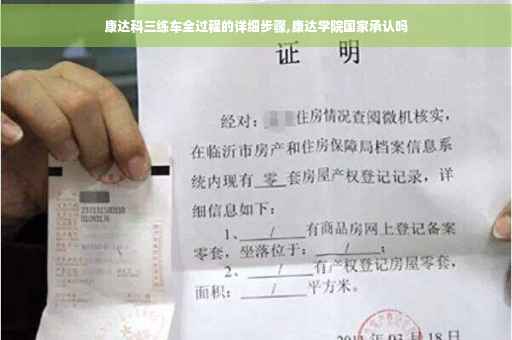 康达科三练车全过程的详细步骤,康达学院国家承认吗
证 明
经对: 住房情况查阅微机核实,
在临沂市房产和住房保障局档案信息系
统内现有 零 套房屋产权登记记录,详
细信息如下:
1、 / 有商品房网上登记备案
零套,坐落位于: / ;
2、 / 有产权登记房屋零套,
面积: / 平方米。
03月18日